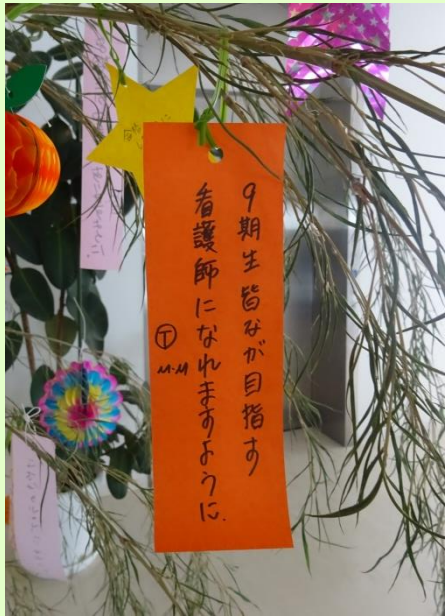 9期生皆なが目指す
看護師になれますように.
Ⓣ
M.M